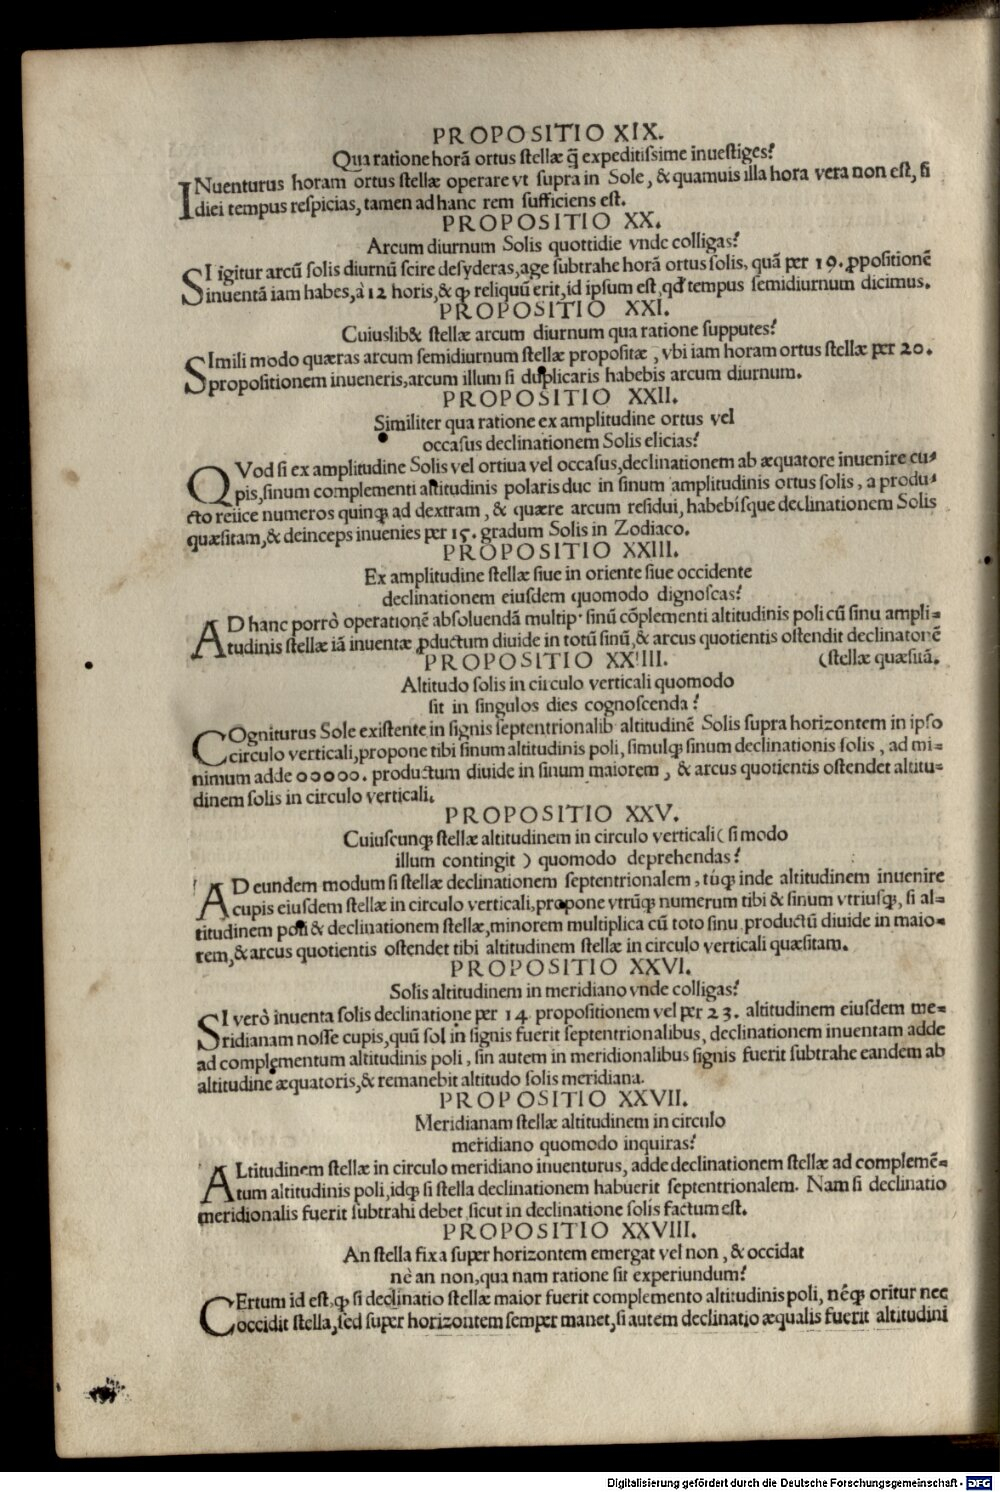 PROPOSITIO XIX.
Qua ratione horã ortus stellæ q̃ expeditissime inuestiges?
INuenturus horam ortus stellæ operare vt supra in Sole, & quamuis illa hora vera non est, si
diei tempus respicias, tamen ad hanc rem sufficiens est.
PROPOSITIO XX.
Arcum diurnum Solis quottidie vnde colligas?
SI igitur arcũ solis diurnũ scire desyderas, age subtrahe horã ortus solis, quã per 19. ꝓpositionẽ
inuentã iam habes, à 12 horis, & ꝙ reliquũ erit, id ipsum est, qđ tempus semidiurnum dicimus.
PROPOSITIO XXI.
Cuiuslib& stellæ arcum diurnum qua ratione supputes?
SImili modo quæras arcum semidiurnum stellæ propositæ, vbi iam horam ortus stellæ per 20.
propositionem inueneris, arcum illum si duplicaris habebis arcum diurnum.
PROPOSITIO XXII.
Similiter qua ratione ex amplitudine ortus vel
occasus declinationem Solis elicias?
QVod si ex amplitudine Solis vel ortiua vel occasus, declinationem ab æquatore inuenire cu-
pis, sinum complementi altitudinis polaris duc in sinum amplitudinis ortus solis, a produ-
cto reiice numeros quinqꝫ ad dextram, & quære arcum residui, habebísque declinationem Solis
quæsitam, & deinceps inuenies per 15. gradum Solis in Zodiaco.
PROPOSITIO XXIII.
Ex amplitudine stellæ siue in oriente siue occidente
declinationem eiusdem quomodo dignoscas?
AD hanc porrò operationẽ absoluendã multip. sinũ cõplementi altitudinis poli cũ sinu ampli-
tudinis stellæ iã inuentæ ꝓductum diuide in totũ sinũ, & arcus quotientis ostendit declinationẽ
PROPOSITIO XXIIII. (stellæ quæsitã.
Altitudo solis in circulo verticali quomodo
sit in singulos dies cognoscenda?
COgniturus Sole existente in signis septentrionalib altitudinẽ Solis supra horizontem in ipso
circulo verticali, propone tibi sinum altitudinis poli, simulqꝫ sinum declinationis solis, ad mi-
nimum adde 00000. productum diuide in sinum maiorem, & arcus quotientis ostendet altitu-
dinem solis in circulo verticali.
PROPOSITIO XXV.
Cuiuscunqꝫ stellæ altitudinem in circulo verticali (si modo
illum contingit) quomodo deprehendas?
AD eundem modum si stellæ declinationem septentrionalem, tùqꝫ inde altitudinem inuenire
cupis eiusdem stellæ in circulo verticali, propone vtrũqꝫ numerum tibi & sinum vtriusqꝫ, si al-
titudinem poli & declinationem stellæ, minorem multiplica cũ toto sinu productũ diuide in maio-
rem, & arcus quotientis ostendet tibi altitudinem stellæ in circulo verticali quæsitam.
PROPOSITIO XXVI.
Solis altitudinem in meridiano vnde colligas?
SI verò inuenta solis declinatione per 14 propositionem vel per 23. altitudinem eiusdem me-
ridianam nosse cupis, quũ sol in signis fuerit septentrionalibus, declinationem inuentam adde
ad complementum altitudinis poli, sin autem in meridionalibus signis fuerit subtrahe eandem ab
altitudine æquatoris, & remanebit altitudo solis meridiana.
PROPOSITIO XXVII.
Meridianam stellæ altitudinem in circulo
meridiano quomodo inquiras?
ALtitudinem stellæ in circulo meridiano inuenturus, adde declinationem stellæ ad complemẽ-
tum altitudinis poli, idqꝫ si stella declinationem habuerit septentrionalem. Nam si declinatio
meridionalis fuerit subtrahi debet sicut in declinatione solis factum est.
PROPOSITIO XXVIII.
An stella fixa super horizontem emergat vel non, & occidat
nè an non, qua nam ratione sit experiundum?
CErtum id est, ꝙ si declinatio stellæ maior fuerit complemento altitudinis poli, néqꝫ oritur nec
occidit stella, sed super horizontem semper manet, si autem declinatio æqualis fuerit altitudini
Digitalisierung gefördert durch die Deutsche Forschungsgemeinschaft - DFG